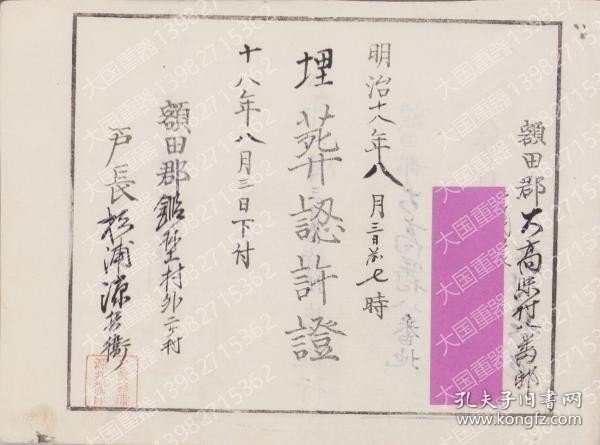 額田郡大高味村八番邸
明治十八年八月三日前七時
埋葬認許證
十八年八月三日下付
額田郡鍛埜村外二ヶ村
戸長 杉浦源兵衛
大国重器13982715362
孔夫子旧书网
www.kongfz.com